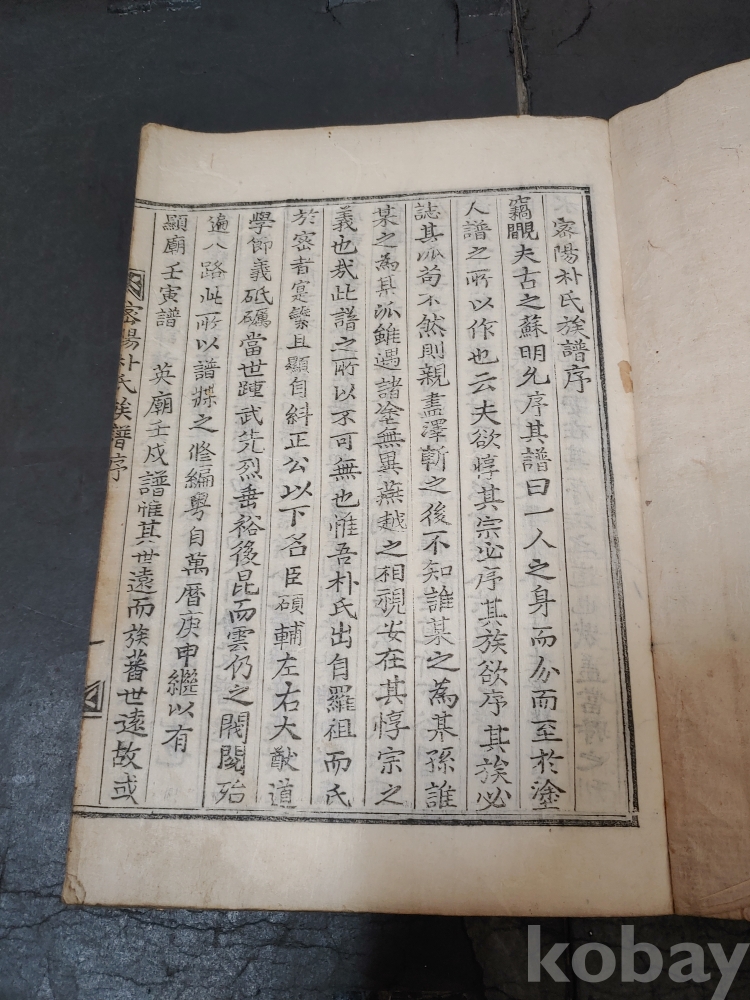 密陽朴氏族譜序
竊覵夫古之蘇明允序其譜曰一人之身而分而至於塗
人譜之所以作也云夫欲惇其宗必序其族欲序其族必
誌其派苟不然則親盡澤斬之後不知誰某之為某孫誰
某之為某派雖遇諸塗無異燕越之相視安在其惇宗之
義也哉此譜之所以不可無也惟吾朴氏出自羅祖而氏
於密者寔繁且顯自糾正公以下名臣碩輔左右大猷道
學節義砥礪當世踵武先烈垂裕後昆而雲仍之閥閱殆
遍八路此所以譜牒之修編粤自萬曆庚申繼以有
顯廟壬寅譜 英廟壬戌譜惟其世遠而族蕃世遠故或
密陽朴氏族譜序
一
kobay